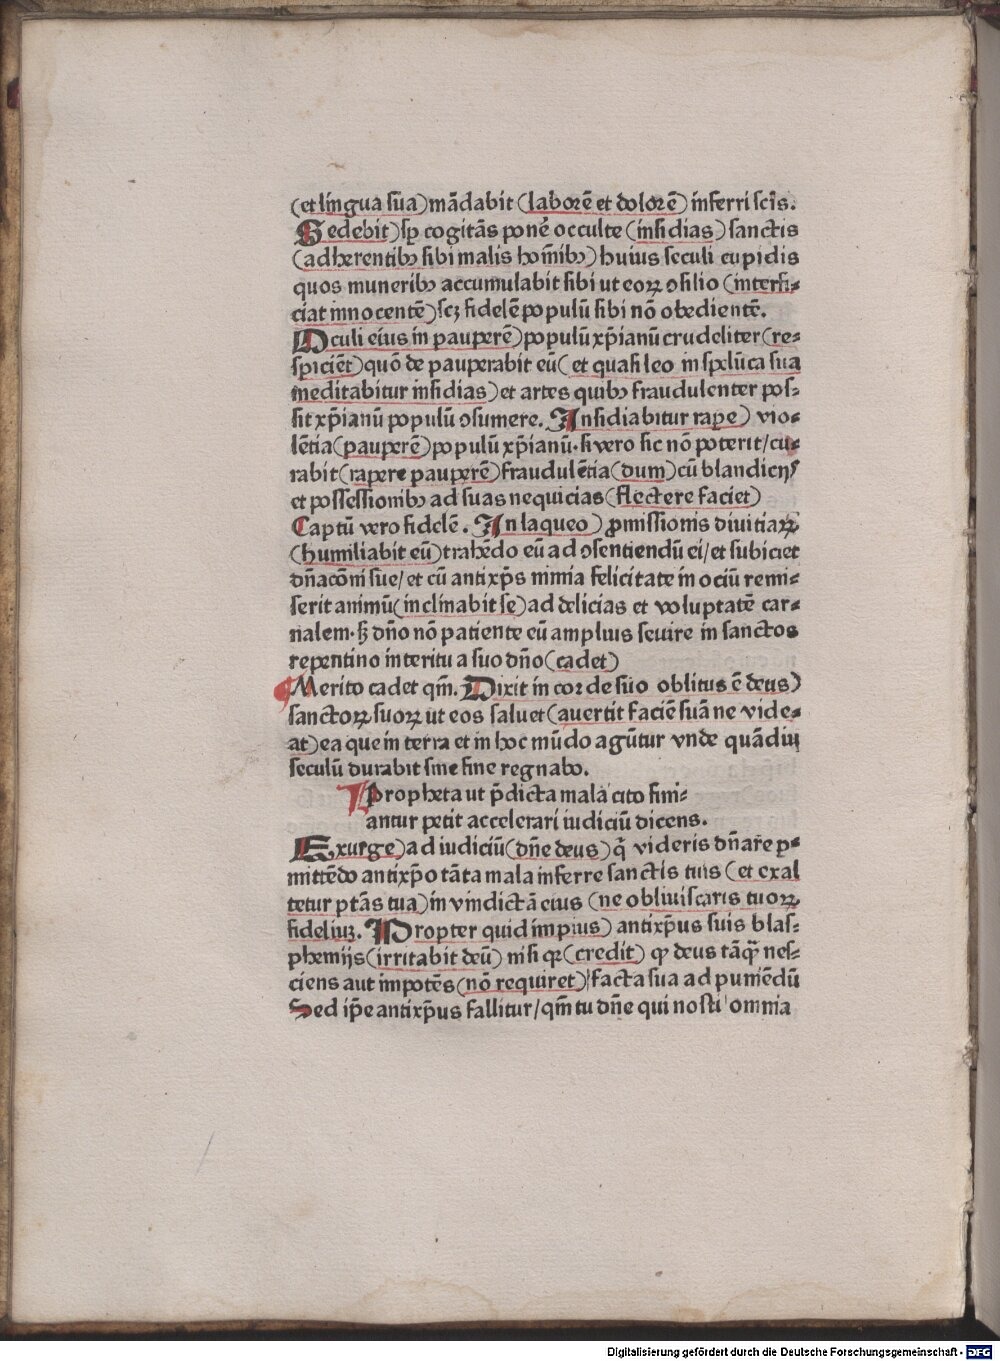 (et lingua sua) mādabit (laborē et dolorē) inferri scīs.
Sedebit) sp cogitās ponē occulte (insidias) sanctis
(adherentibꝫ sibi malis homībꝫ) huius seculi cupidis
quos muneribꝫ accumulabit sibi ut eoꝝ ꝯsilio (interfi⸗
ciat innocentē) scꝫ fidelē populū sibi nō obedientē.
Oculi eius in pauperē) populū xp̄ianū crudeliter (re⸗
spiciēt) quō depauperabit eū (et quasi leo in spelūca sua
meditabitur insidias) et artes quibꝫ fraudulenter pos⸗
sit xp̄ianū populū ꝯsumere. Insidiabitur rape) vio⸗
lētia (pauperē) populū xp̄ianū. si vero sic nō poterit/cu⸗
rabit (rapere pauperē) fraudulētia (dum) cū blandicijs
et possessionibꝫ ad suas nequicias (flectere faciet)
Captū vero fidelē. In laqueo) ꝓmissionis diuitiaꝝ
(humiliabit eū) trahēdo eū ad ꝯsentiendū ei/et subiciet
dn̄acōni sue/et cū antixp̄s nimia felicitate in ociū remi⸗
serit animū (inclinabit se) ad delicias et voluptatē car⸗
nalem. sꝫ dn̄o nō patiente eū amplius seuire in sanctos
repentino interitu a suo dn̄o (cadet)
¶Merito cadet qm̄. Dixit in corde suo oblitus ē deus)
sanctoꝝ suoꝝ ut eos saluet (auertit faciē suā ne vide⸗
at) ea que in terra et in hoc mūdo agūtur vnde quādiu
seculū durabit sine fine regnabo.
Propheta ut p̄dicta mala cito fini⸗
antur petit accelerari iudiciū dicens.
Exurge) ad iudiciū (dn̄e deus) q̄ videris dn̄are p⸗
mittēdo antixp̄o tāta mala inferre sanctis tuis (et exal
tetur ptās tua) in vindictā eius (ne obliuiscaris tuoꝝ
fideliuꝫ. Propter quid impius) antixp̄us suis blas⸗
phemijs (irritabit deū) nisi qꝛ (credit) ꝙ deus tāꝙ̄ nes⸗
ciens aut impotēs (nō requiret) facta sua ad puniēdū
Sed ip̄e antixp̄us fallitur/qm̄ tu dn̄e qui nosti omnia
Digitalisierung gefördert durch die Deutsche Forschungsgemeinschaft - DFG